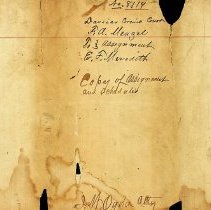 No. 8119
Daviess Circuit Court
P. A. Menzel
To } Assignment
E. F. Meredith
Copy of Assignment
and Schedules
Atty